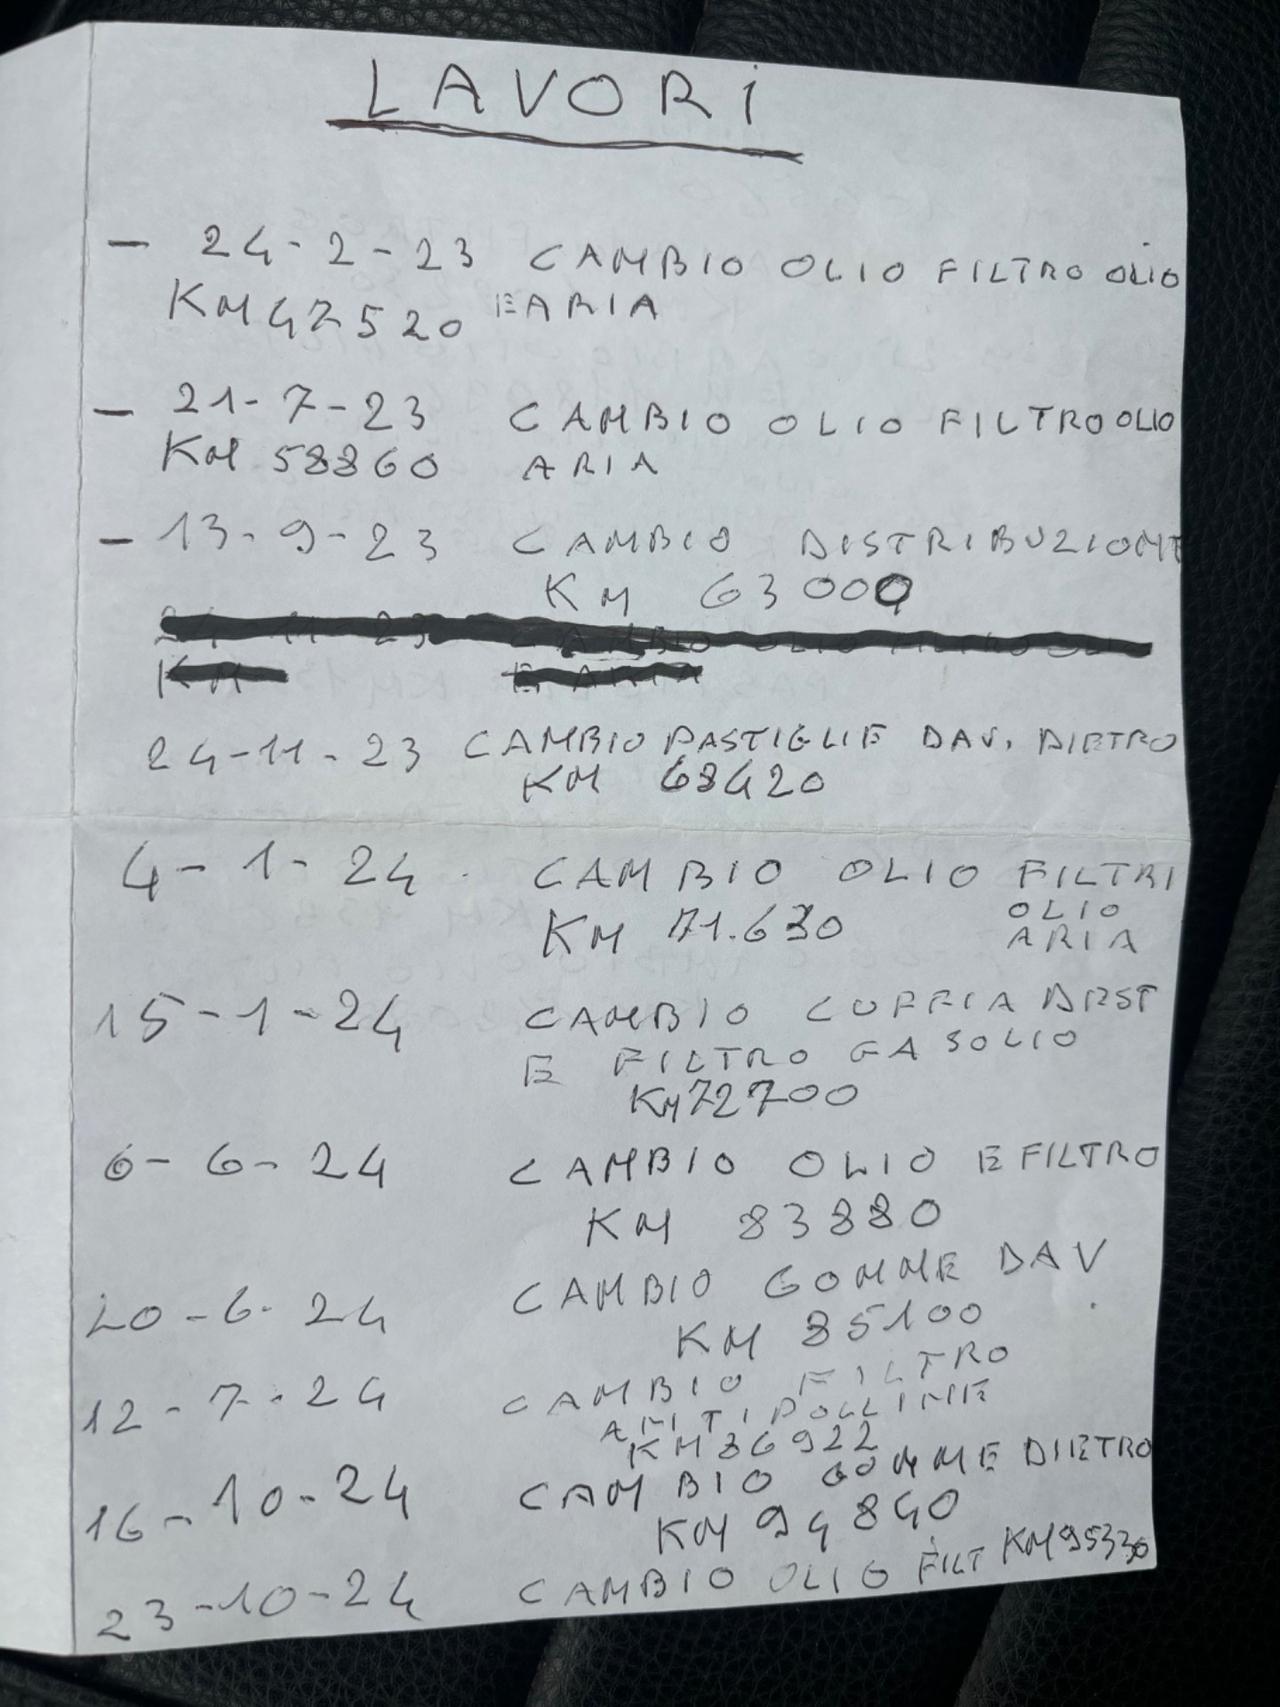 LAVORI
- 24-2-23 CAMBIO OLIO FILTRO OLIO
KM 47520 E ARIA
- 21-7-23 CAMBIO OLIO FILTRO OLIO
KM 58860 ARIA
- 13-9-23 CAMBIO DISTRIBUZIONE
KM 63000
24-11-23 CAMBIO PASTIGLIE DAV. DIETRO
KM 68420
4-1-24 CAMBIO OLIO FILTRI
OLIO
KM 71.630 ARIA
15-1-24 CAMBIO CUFFIA DEST
E FILTRO GASOLIO
KM 72700
6-6-24 CAMBIO OLIO E FILTRO
KM 83880
20-6-24 CAMBIO GOMME DAV
KM 85100
12-7-24 CAMBIO FILTRO
ANTIPOLLINE
KM 86922
16-10-24 CAMBIO GOMME DIETRO
KM 94840
23-10-24 CAMBIO OLIO FILT KM 95330